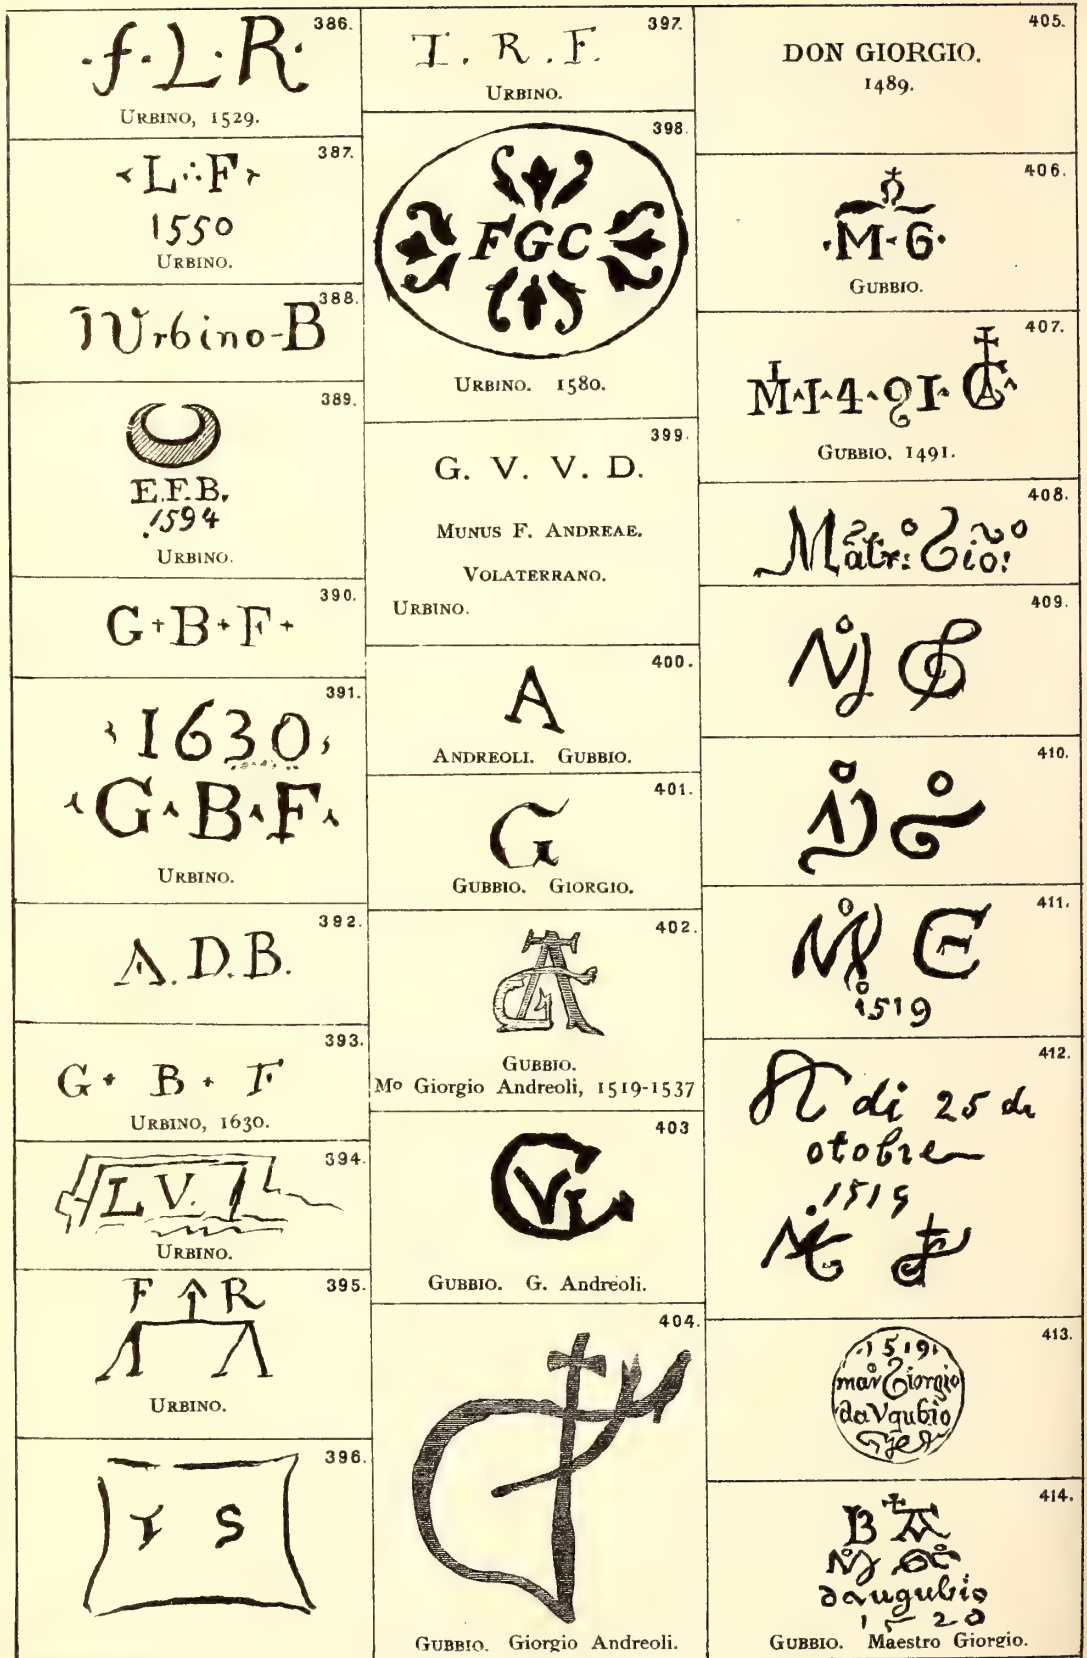 386.
·f·L·R·
URBINO, 1529.
387.
L∴F
1550
URBINO.
388.
Urbino-B
389.
E.F.B.
1594
URBINO.
390.
G+B+F+
391.
1630
G·B·F
URBINO.
392.
A.D.B.
393.
G+ B+ F
URBINO, 1630.
394.
L V.
URBINO.
395.
F R
URBINO.
396.
S
397.
T. R. F.
URBINO.
398.
FGC
URBINO. 1580.
399.
G. V. V. D.
MUNUS F. ANDREAE.
VOLATERRANO.
URBINO.
400.
A
ANDREOLI. GUBBIO.
401.
G
GUBBIO. GIORGIO.
402.
GUBBIO.
Mº Giorgio Andreoli, 1519-1537
403
GUBBIO. G. Andreoli.
404.
GUBBIO. Giorgio Andreoli.
405.
DON GIORGIO.
1489.
406.
·M·G·
GUBBIO.
407.
M·1·4·91· G
GUBBIO, 1491.
408.
409.
410.
411.
1519
412.
di 25 de
otobre
1519
413.
1519
Giorgio
da Ugubio
414.
B
da ugubio
1520
GUBBIO. Maestro Giorgio.